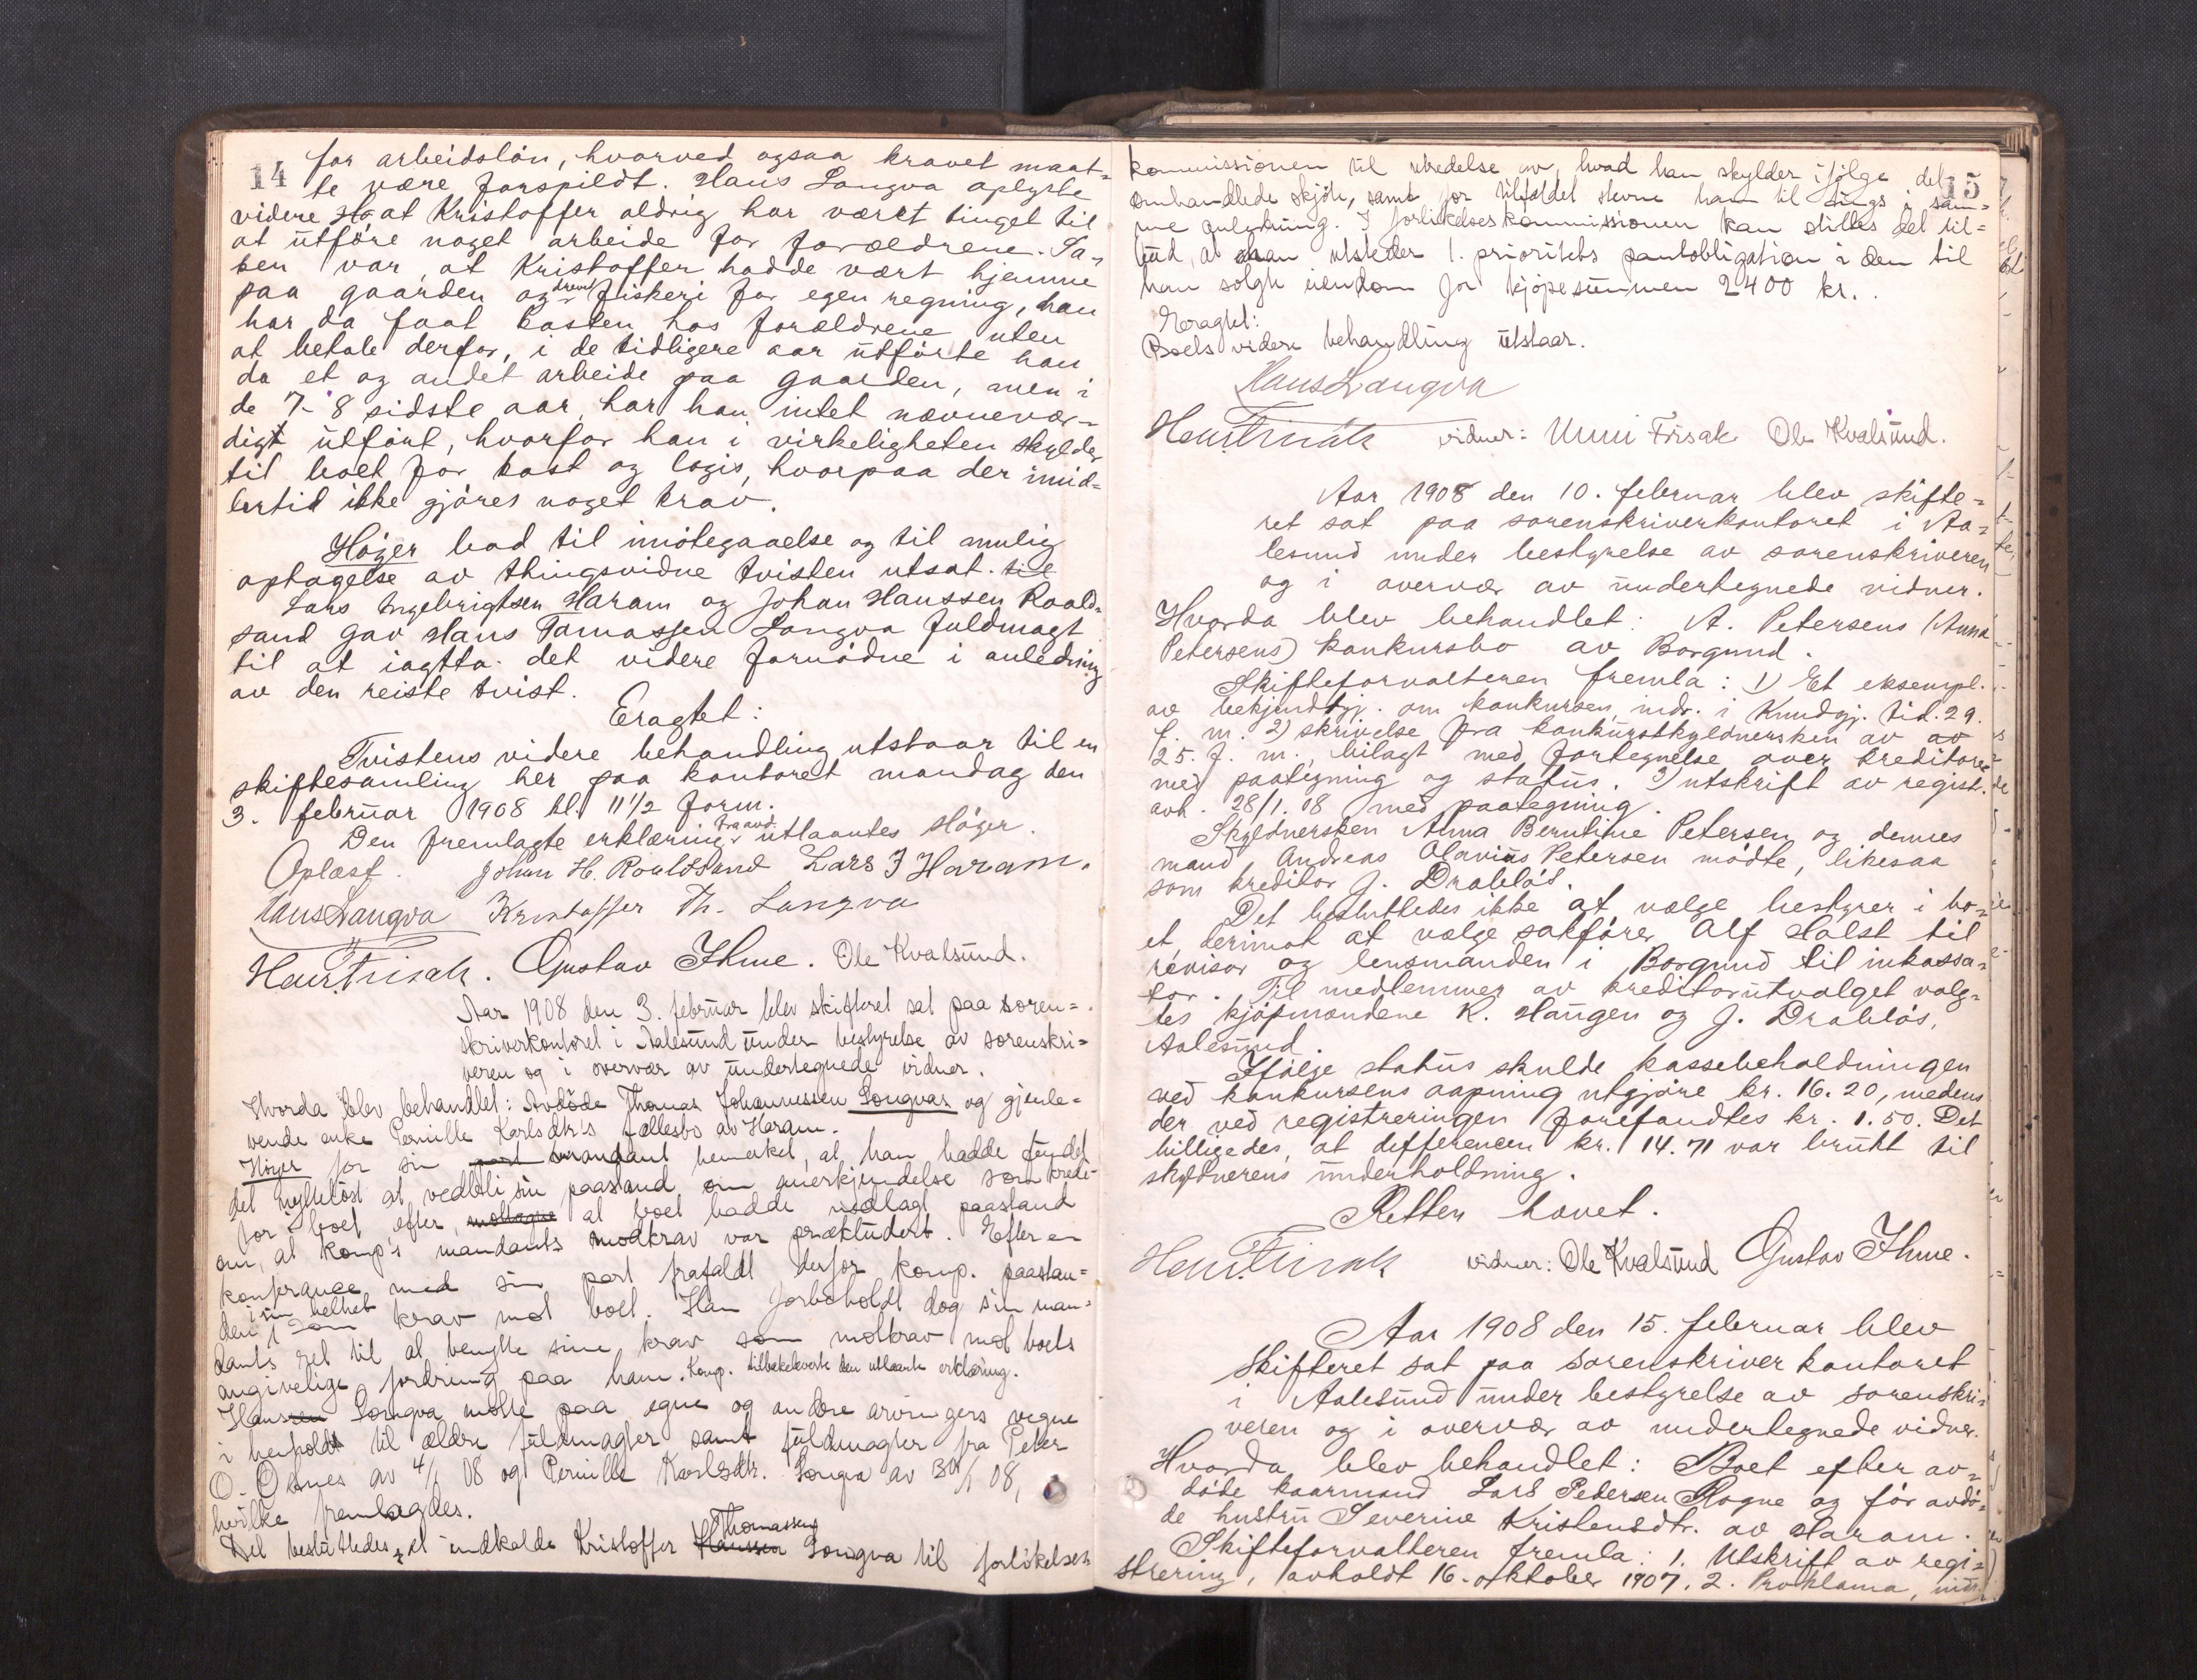 14
for arbeidslön, hvorved ogsaa kravet maat=
te være forspildt. Hans Longva oplyste
videre at Kristoffer aldrig har været tinget til
at utföre noget arbeide for forældrene. Sa=
ken var, at Kristoffer hadde vært hjemme
paa gaarden og drevet fiskeri for egen regning, han
har da faat kosten hos forældrene uten
at betale derfor, i de tidligere aar utförte han
da et og andet arbeide paa gaarden, men i
de 7-8 sidste aar har han intet nævnevær=
digt utfört, hvorfor han i virkeligheten skylder
til boet for kost og logis, hvorpaa der imid=
lertid ikke gjöres noget krav.
Höyer bad til imötegaaelse og til mulig
optagelse av thingsvidne tvisten utsat. til
Lars Ingebrigtsen Haram og Johan Hanssen Roald=
sand gav Hans Tomassen Longva fuldmagt
til at iagtta det videre fornödne i anledning
av den reiste tvist.
Eragtet:
Tvistens videre behandling utstaar til en
skiftesamling her paa kontoret mandag den
3. februar 1908 kl. 11 1/2 form.
Den fremlagte erklæring utlaantes Höyer.
Oplæst. Johan H. Roaldsand Lars I Haram.
Hans Longva Kristoffer Th. Longva
Hans Frisak. Gustav Ihme. Ole Kvalsund.
Aar 1908 den 3. februar blev skifteret sat paa soren=
skriverkontoret i Aalesund under bestyrelse av sorenskri=
veren og i overvær av undertegnede vidner.
Hvorda blev behandlet: Avdöde Thomas Johannessen Longvas og gjenle=
vende enke Pernille Karlsdtr's fællesbo av Haram.
Höyer for sin mandant bemerket, at han hadde fundet
det nyttelöst at vedbli sin paastand om anerkjendelse som kredi=
tor i boet efter, mottagne at boet hadde nedlagt paastand
om, at komp's mandants modkrav var prækludert. Efter en
konferance med sin part frafaldt derfor komp. paastan=
den i sin helhet som krav mot boet. Han forbeholdt dog sin man=
dants ret til at benytte sine krav som motkrav mot boets
angivelige fordring paa ham. Komp. tilbakeleverte den utlaante erklæring.
Hanssen Longva mötte paa egne og andre arvingers vegne
i henhold til ældre fuldmagter samt fuldmagter fra Peter
O. Otsnes av 4/1 08 og Pernille Karlsdtr. Longva av 30/1 08,
hvilke fremlagdes.
Det besluttedes, at indkalde Kristoffer Hanssen Thomassen Longva til forlikelses=
15
kommissionen til utredelse av, hvad han skylder ifölge det
omhandlede skjöte, samt for tilfældet stevne ham til tings i sam=
me anledning. I forlikelseskommissionen kan stilles det til=
bud, at han utsteder 1. prioritets pantobligation i den til
han solgte eiendom for kjöpesummen 2400 kr..
Eragtet:
Boets videre behandling utstaar.
Hans Longva
Hans Frisak vidner: Unni Frisak Ole Kvalsund.
Aar 1908 den 10. februar blev skifte=
ret sat paa sorenskriverkontoret i Aa=
lesund under bestyrelse av sorenskriveren
og i overvær av undertegnede vidner.
Hvorda blev behandlet: A. Petersens (Anna
Petersens) konkursbo av Borgund.
Skifteforvalteren fremla: 1) Et eksempl.
av bekjendtgj. om konkursen indr. i Kundgj. tid. 29.
f. m. 2) skrivelse fra konkursskyldnersken av av
25. f. m., bilagt med fortegnelse over kreditorer
med paategning og status. 3) utskrift av regist.
avh. 28/1. 08 med paategning.
Skyldnersken Anna Berntine Petersen og dennes
mand, Andreas Olavius Petersen mödte, likesaa
som kreditor J. Drablös.
Det besluttedes ikke at vælge bestyrer i bo=
et, derimot at vælge sakförer Alf Holst til
revisor og lensmanden i Borgund til inkassa=
tor. Til medlemmer av kreditorutvalget valg=
tes kjöpmændene K. Haugen og J. Drablös,
Aalesund.
Ifölge status skulde kassebeholdningen
ved konkursens aapning utgjöre kr. 16.20, medens
der ved registreringen forefandtes kr. 1.50. Det
billigedes, at differencen kr. 14.71 var brukt til
skyldnerens underholdning.
Retten hævet.
Hans Frisak vidner: Ole Kvalsund Gustav Ihme.
Aar 1908 den 15. februar blev
skifteret sat paa sorenskriverkontoret
i Aalesund under bestyrelse av sorenskri=
veren og i overvær av undertegnede vidner.
Hvorda blev behandlet: Boet efter av=
döde kaarmand Lars Pedersen Rogne og för avdö=
de hustru Severine Kristensdtr. av Haram.
Skifteforvalteren fremla: 1. Utskrift av regi=
strering, avholdt 16. oktober 1907. 2. Proklama, indr.